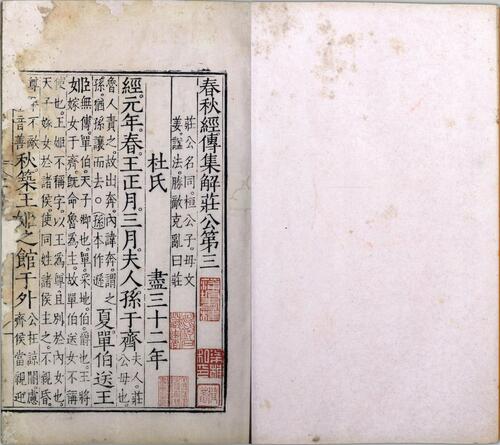 春秋經傳集解莊公第三
莊公名同桓公子母文
姜諡法勝敵克亂曰莊
杜氏 盡三十二年
經元年春王正月三月夫人孫于齊夫人莊
公母也
魯人責之故出奔內諱奔謂之
孫猶孫讓而去孫本作遜
夏單伯送王
姬無傳單伯天子卿也單采地伯爵也王將
嫁女于齊既命魯為主故單伯送女不稱
使也王姬不稱字以王為尊且別於內女也
天子嫁女於諸侯使同姓諸侯主之不親昏
尊卑不敵
秋築王姬之館于外
公在諒闇慮
齊侯當親迎